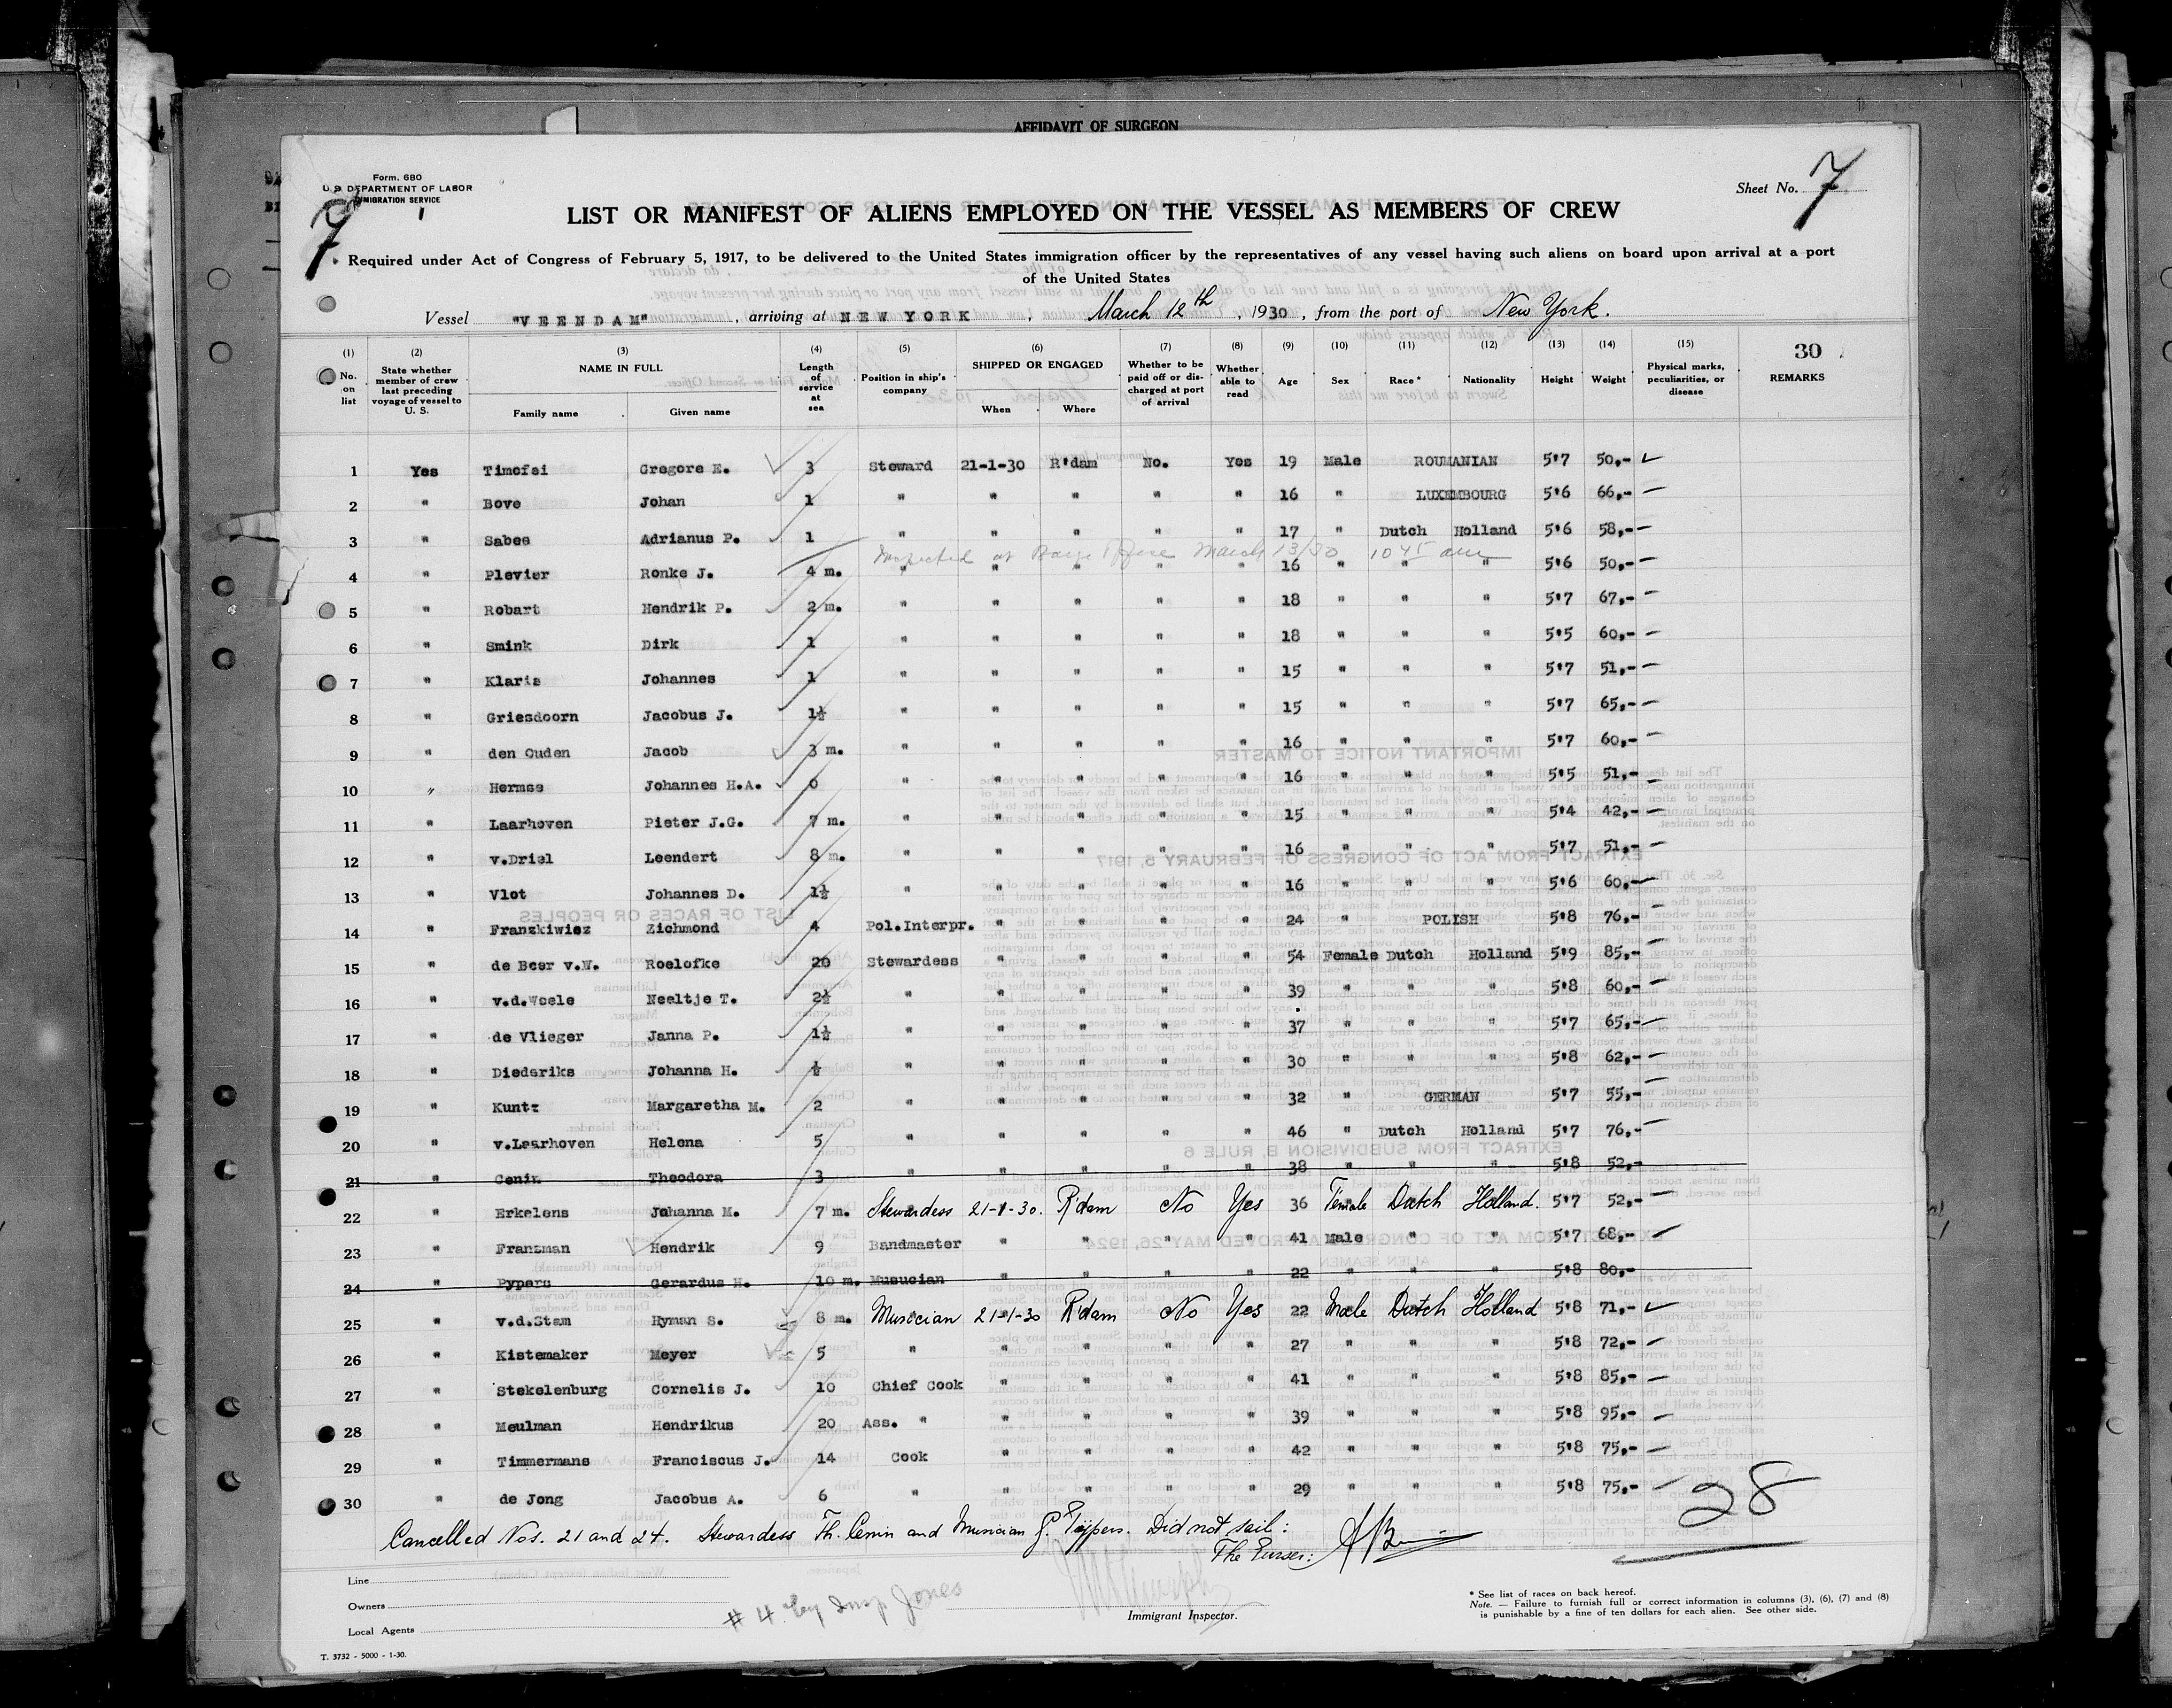 AFFIDAVIT OF SURGEON
Form. 680
U.S. DEPARTMENT OF LABOR
IMMIGRATION SERVICE
7
Sheet No. 7
LIST OR MANIFEST OF ALIENS EMPLOYED ON THE VESSEL AS MEMBERS OF CREW
Required under Act of Congress of February 5, 1917, to be delivered to the United States immigration officer by the representatives of any vessel having such aliens on board upon arrival at a port
of the United States
Vessel "VEENDAM", arriving at NEW YORK, March 12th, 1930, from the port of New York.
(1) No. on list (2) State whether member of crew last preceding voyage of vessel to U. S. (3) NAME IN FULL Family name Given name (4) Length of service at sea (5) Position in ship's company (6) SHIPPED OR ENGAGED When Where (7) Whether to be paid off or discharged at port of arrival (8) Whether able to read (9) Age (10) Sex (11) Race * (12) Nationality (13) Height (14) Weight (15) Physical marks, peculiarities, or disease 30 REMARKS
1 Yes Timofei Gregore E. 3 Steward 21-1-30 R'dam No. Yes 19 Male ROUMANIAN 5'7 50,-
2 " Bove Johan 1 " " " " " 16 " LUXEMBOURG 5'6 66,-
3 " Sabee Adrianus P. 1 " " " " " 17 " Dutch Holland 5'6 58,-
Inspected at Barge Office March 13/30 10 45 am
4 " Plevier Ronke J. 4 m. " " " " " 16 " " " 5'6 50,-
5 " Robart Hendrik P. 2 m. " " " " " 18 " " " 5'7 67,-
6 " Smink Dirk 1 " " " " " 18 " " " 5'5 60,-
7 " Klaris Johannes 1 " " " " " 15 " " " 5'7 51,-
8 " Griesdoorn Jacobus J. 1½ " " " " " 15 " " " 5'7 65,-
9 " den Ouden Jacob 3 m. " " " " " 16 " " " 5'7 60,-
10 " Hermse Johannes H.A. 0 " " " " " 16 " " " 5'5 51,-
11 " Laarhoven Pieter J.G. 7 m. " " " " " 15 " " " 5'4 42,-
12 " v.Driel Leendert 8 m. " " " " " 16 " " " 5'7 51,-
13 " Vlot Johannes D. 1½ " " " " " 16 " " " 5'6 60,-
14 " Franzkiwicz Zichmond 4 Pol.Interpr. " " " " 24 " POLISH 5'8 76,-
15 " de Beer v.W. Roelofke 20 Stewardess " " " " 54 Female Dutch Holland 5'9 85,-
16 " v.d.Weele Neeltje T. 2½ " " " " " 39 " " " 5'8 60,-
17 " de Vlieger Janna P. 1½ " " " " " 37 " " " 5'7 65,-
18 " Diederiks Johanna H. ½ " " " " " 30 " " " 5'8 62,-
19 " Kuntz Margaretha M. 2 " " " " " 32 " GERMAN 5'7 55,-
20 " v.Laarhoven Helena 5 " " " " " 46 " Dutch Holland 5'7 76,-
21 " Cenin Theodora 3 " " " " " 38 " " " 5'8 52,-
22 " Erkelens Johanna M. 7 m. Stewardess 21-1-30. R'dam No Yes 36 Female Dutch Holland. 5'7 52,-
23 " Franzman Hendrik 9 Bandmaster " " " " 41 Male " " 5'7 68,-
24 " Pypers Gerardus H. 10 m. Musucian " " " " 22 " " " 5'8 80,-
25 " v.d.Stam Hyman S. 8 m. Musician 21-1-30 R'dam No Yes 22 Male Dutch Holland 5'8 71,-
26 " Kistemaker Meyer 5 " " " " " 27 " " " 5'8 72,-
27 " Stekelenburg Cornelis J. 10 Chief Cook " " " " 41 " " " 5'8 85,-
28 " Meulman Hendrikus 20 Ass. " " " " " 39 " " " 5'8 95,-
29 " Timmermans Franciscus J. 14 Cook " " " " 42 " " " 5'8 75,-
30 " de Jong Jacobus A. 6 " " " " " 29 " " " 5'8 75,-
28
Cancelled Nos. 21 and 24. Stewardess Th. Cenin and Musician G. Pijpers. Did not sail:
The Purser:
Line
Owners
Local Agents
# 4 by Insp Jones
Immigrant Inspector.
* See list of races on back hereof.
Note. — Failure to furnish full or correct information in columns (3), (6), (7) and (8)
is punishable by a fine of ten dollars for each alien. See other side.
T. 3732 - 5000 - 1-30.